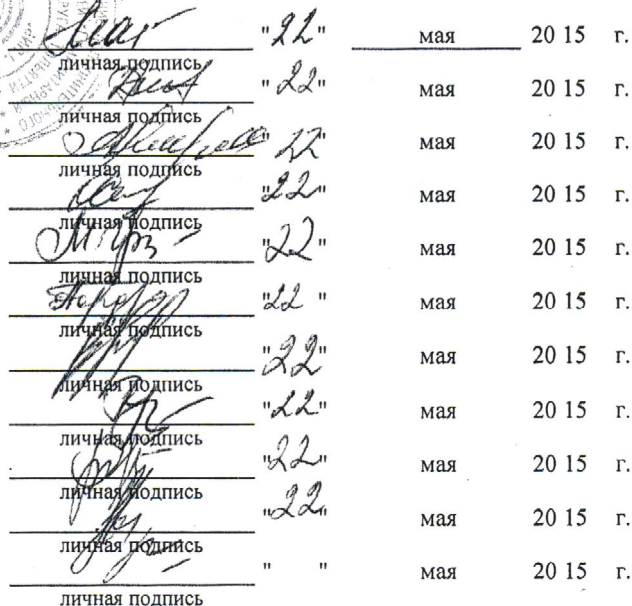 "22" мая 20 15 г.
личная подпись
"22" мая 20 15 г.
личная подпись
"22" мая 20 15 г.
личная подпись
"22" мая 20 15 г.
личная подпись
"22" мая 20 15 г.
личная подпись
"22" мая 20 15 г.
личная подпись
"22" мая 20 15 г.
личная подпись
"22" мая 20 15 г.
личная подпись
"22" мая 20 15 г.
личная подпись
"22" мая 20 15 г.
личная подпись
" " мая 20 15 г.
личная подпись